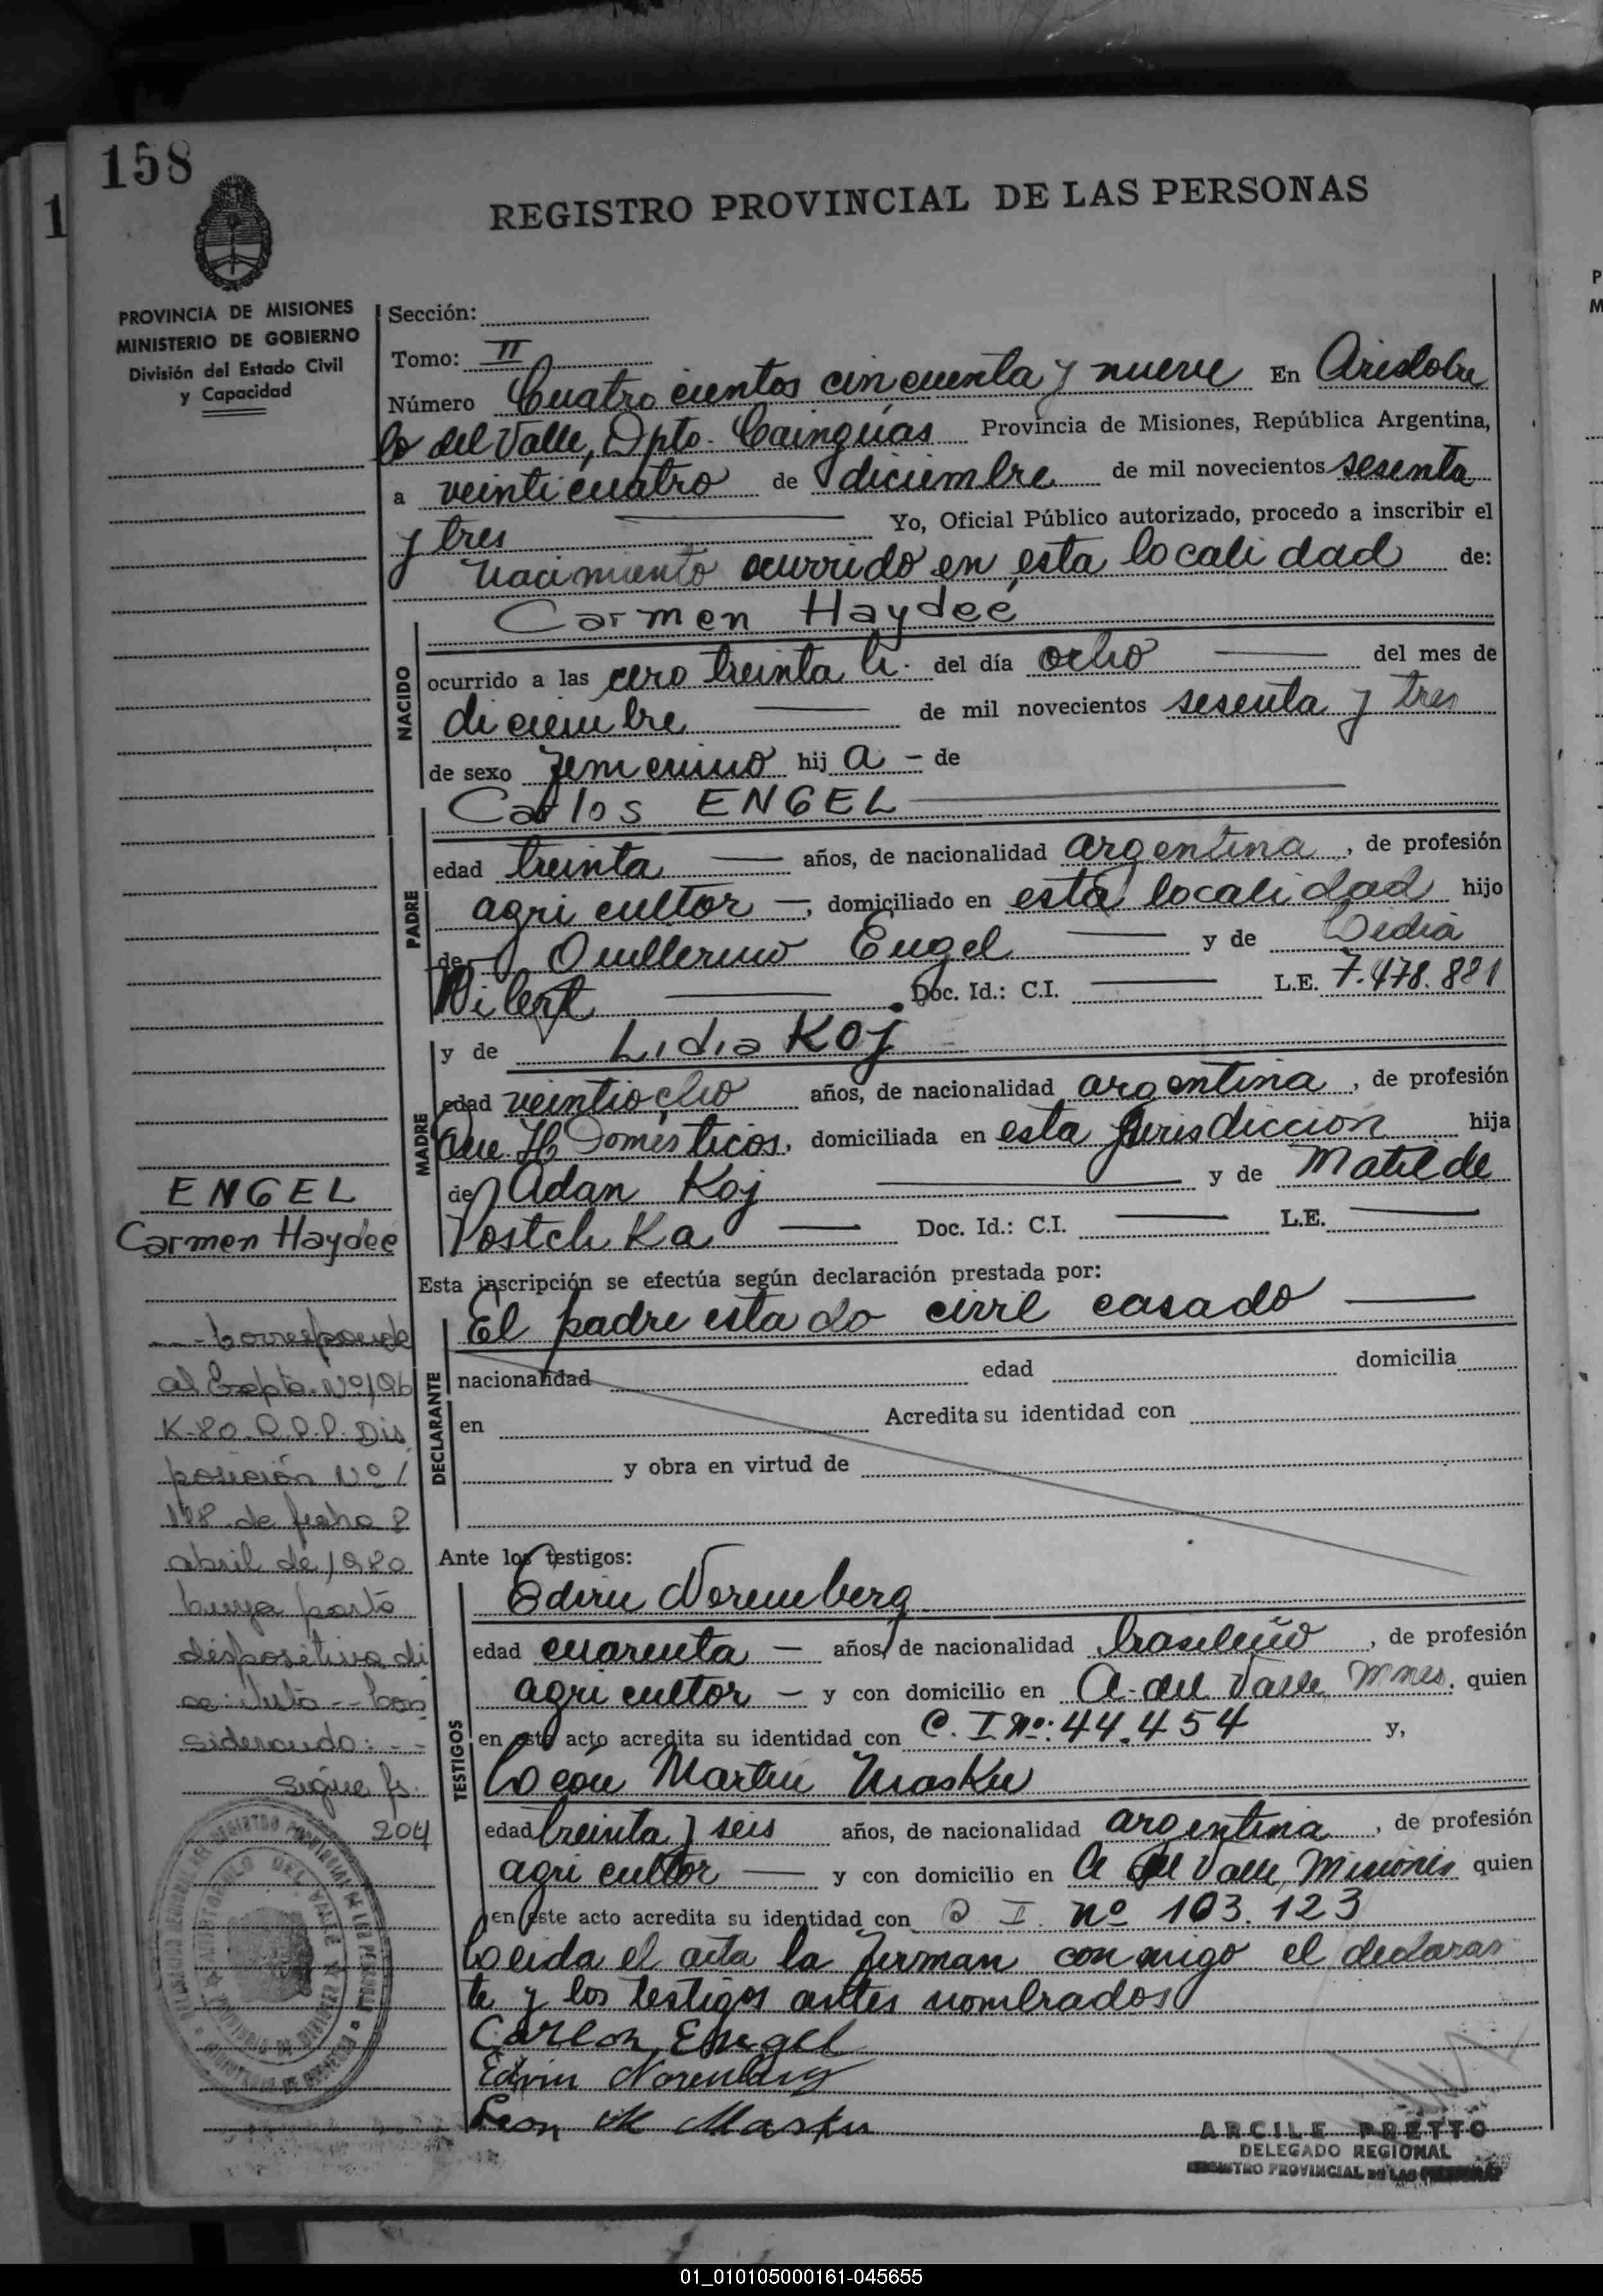 158
REGISTRO PROVINCIAL DE LAS PERSONAS
PROVINCIA DE MISIONES
MINISTERIO DE GOBIERNO
División del Estado Civil
y Capacidad
Sección:
Tomo: II
Número Cuatro cientos cincuenta y nueve En Aristobu
lo del Valle, Dpto. Cainguás Provincia de Misiones, República Argentina,
a veinticuatro de diciembre de mil novecientos sesenta
y tres Yo, Oficial Público autorizado, procedo a inscribir el
nacimiento ocurrido en esta localidad de:
Carmen Haydeé
NACIDO
ocurrido a las cero treinta h. del día ocho del mes de
diciembre de mil novecientos sesenta y tres
de sexo femenino hij a - de
Carlos ENGEL
PADRE
edad treinta años, de nacionalidad argentina, de profesión
agricultor -, domiciliado en esta localidad hijo
de Guillermo Engel y de
Doc. Id.: C.I. L.E. 7.478.881
y de Lidia Koj
MADRE
edad veintiocho años, de nacionalidad argentina, de profesión
Que. H Domésticos, domiciliada en esta jurisdicción hija
de Adan Koj y de Matilde
Postch Ka Doc. Id.: C.I. L.E.
Esta inscripción se efectúa según declaración prestada por:
El padre estado civil casado
DECLARANTE
nacionalidad edad domicilia
en Acredita su identidad con
y obra en virtud de
Ante los testigos:
TESTIGOS
Edvin Noremberg
edad cuarenta - años, de nacionalidad brasileño, de profesión
agricultor - y con domicilio en A. del Valle Mnes. quien
en este acto acredita su identidad con C. I Nº: 44.454 y,
León Martin Masku
edad treinta y seis años, de nacionalidad argentina, de profesión
agricultor y con domicilio en A del Valle, Misiones quien
en este acto acredita su identidad con C I. nº 103.123
Leida el acta la firman conmigo el declaran
te y los testigos antes nombrados
Carlos Engel
Edvin Noremberg
Leon M Masku
ENGEL
Carmen Haydee
Corresponde
al Expte. Nº 196
K-80-R.P.P. Dis
posición Nº 1
198 de fecha 8
abril de 1980
cuya parte
dispositiva di
ce: Visto -- Con
siderando: --
Sigue fs.
204
ARCILE PRETTO
DELEGADO REGIONAL
REGISTRO PROVINCIAL DE LAS PERSONAS
01_010105000161-045655